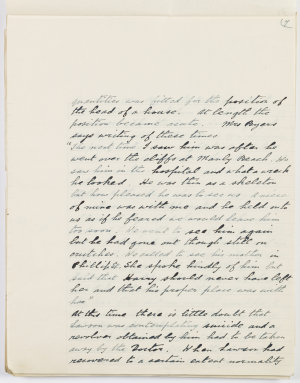 7
quantities was fitted for the position of
the head of a house. At length the
position became acute. Mrs Byers
says writing of these times
"The next time I saw him was after he
went over the cliffs at Manly Beach. We
saw him in the hospital and what a wreck
he looked. He was thin as a skeleton
but how pleased he was to see us. A niece
of mine was with me and he held onto
us as if he feared we would leave him
too soon. We went to see him again
but he had gone out though still on
crutches. We called to see his mother in
Phillip St. She spoke kindly of him but
said that Harry should never have left
her and that his proper place was with
her"
At this time there is little doubt that
Lawson was contemplating suicide and a
revolver obtained by him had to be taken
away by the Doctor. When Lawson had
recovered to a certain extent normality